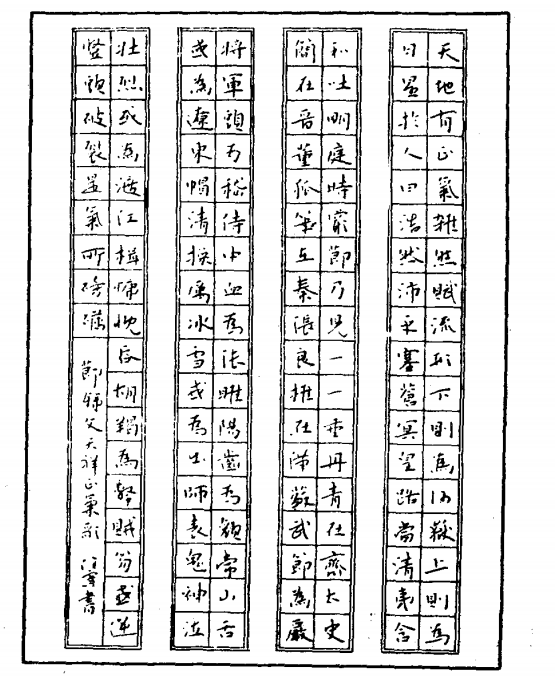 天地有正氣雜然賦流形下則為河嶽上則為
日星於人曰浩然沛乎塞蒼冥皇路當清夷含
和吐明庭時窮節乃見一一垂丹青在齊太史
簡在晉董狐筆在秦張良椎在漢蘇武節為嚴
將軍頭為嵇侍中血為張睢陽齒為顏常山舌
或為遼東帽清操厲冰雪或為出師表鬼神泣
壯烈或為渡江楫慷慨吞胡羯為擊賊笏逆
豎頭破裂是氣所磅礴 節錄文天祥正氣歌 書